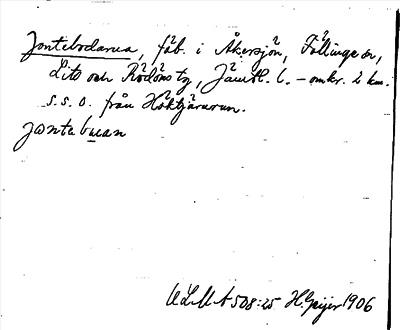 Jontebodarna, fäb. i Åkersjön, Föllinge sn,
Lits och Rödöns tg, Jämtl. l. – omkr. 2 km.
s.s.o. från Höktjärnarna.
jontabuan
ULMA 508:25 H. Geijer 1906